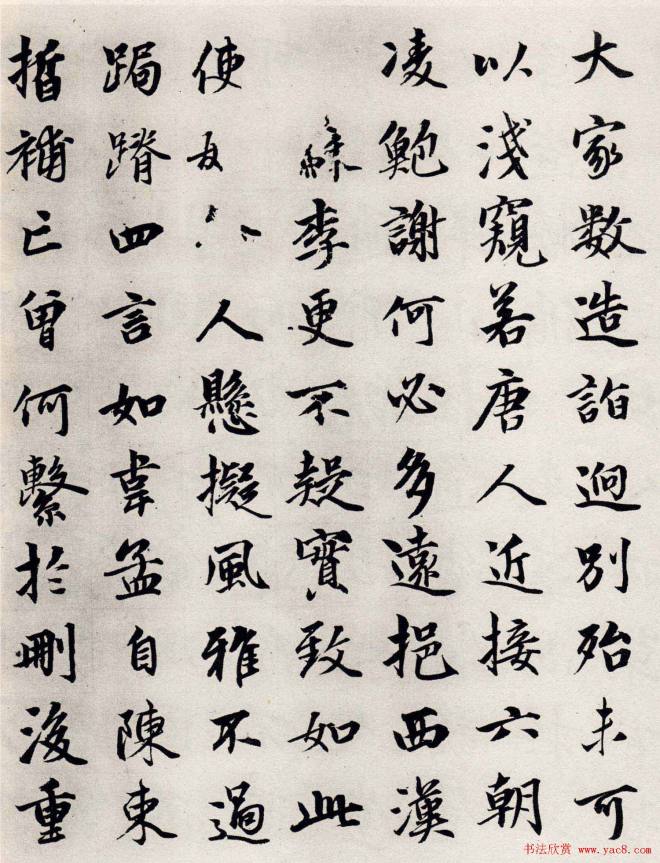 大家數造詣迥別殆未可
以淺窺若唐人近接六朝
凌鮑謝何必多遠挹西漢
李更不疑實致如此
使人懸擬風雅不過
跼蹐四言如韋孟自陳束
晳補亡曾何繫於刪後重
书法欣赏 www.yac8.com